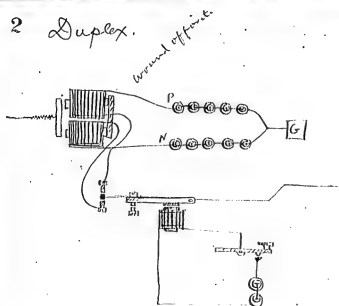 2 Duplex.
wound opposite.
P
N
G